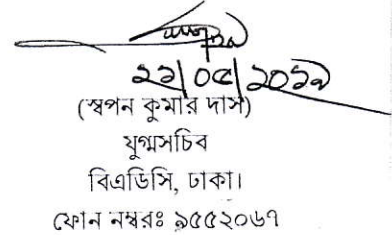 (স্বপন কুমার দাস)
যুগ্মসচিব
বিএডিসি, ঢাকা।
ফোন নম্বরঃ ৯৫৫২০৬৭